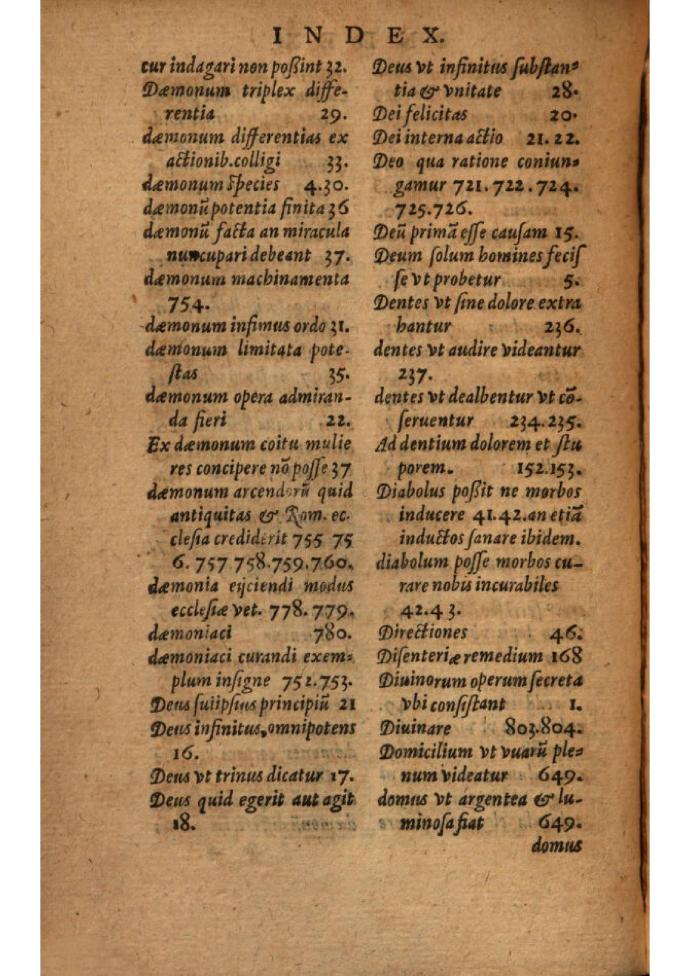 INDEX.
cur indagari non poßint 32.
Dæmonum triplex diffe-
rentia 29.
dæmonum differentias ex
actionib.colligi 33.
dæmonum species 4.30.
dæmonũ potentia finita 36
dæmonũ facta an miracula
nuncupari debeant 37.
dæmonum machinamenta
754.
dæmonum infimus ordo 31.
dæmonum limitata pote-
ſtas 35.
dæmonum opera admiran-
da fieri 22.
Ex dæmonum coitu mulie
res concipere nõ poſſe 37
dæmonum arcendorũ quid
antiquitas & Rom. ec.
cleſia crediderit 755 75
6. 757 758.759.760.
dæmonia eijciendi modus
eccleſiæ vet. 778.779.
dæmoniaci 780.
dæmoniaci curandi exem-
plum inſigne 752.753.
Deus ſuiipſius principiũ 21
Deus infinitus, omnipotens
16.
Deus vt trinus dicatur 17.
Deus quid egerit aut agit
18.
Deus vt infinitus ſubſtan-
tia & vnitate 28.
Dei felicitas 20.
Dei interna actio 21. 22.
Deo qua ratione coniun-
gamur 721.722.724.
725.726.
Deũ primã eſſe cauſam 15.
Deum ſolum homines feciſ
ſe vt probetur 5.
Dentes vt ſine dolore extra
hantur 236.
dentes vt audire videantur
237.
dentes vt dealbentur vt cõ-
ſeruentur 234.235.
Ad dentium dolorem et ſtu
porem. 152.153.
Diabolus poßit ne morbos
inducere 41.42.an etiã
inductos ſanare ibidem.
diabolum poſſe morbos cu-
rare nobis incurabiles
42.43.
Directiones 46.
Diſenteriæ remedium 168
Diuinorum operum ſecreta
vbi conſiſtant 1.
Diuinare 803.804.
Domicilium vt vuarũ ple-
num videatur 649.
domus vt argentea & lu-
minoſa fiat 649.
domus